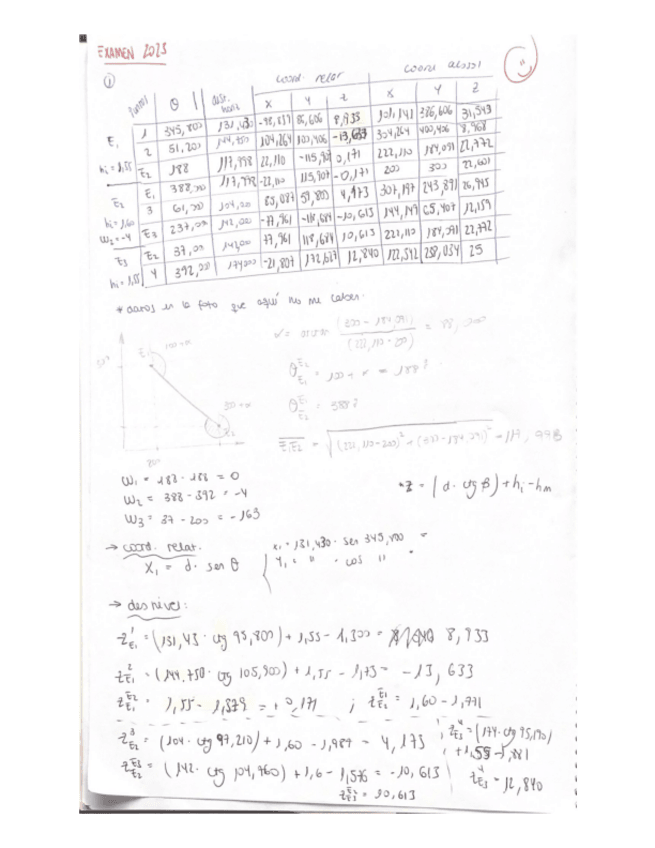 EXAMEN 2023
①
coord. relat coord absol
puntos θ dist. horiz x y z x y z
E₁ 1 345,800 131,430 -98,839 86,606 8,933 101,141 386,606 31,543
2 51,200 144,750 104,264 100,406 -13,633 304,264 400,406 8,968
hi=1,55 E₂ 188 117,998 22,110 -115,907 0,171 222,110 184,091 22,772
E₂ E₁ 388,00 117,998 -22,110 115,907 -0,171 200 300 22,601
hi=1,60 3 61,00 104,00 85,087 59,800 4,173 307,197 243,891 26,945
W₂=-4 E₃ 237,00 142,00 -77,961 -118,684 -10,613 144,149 65,407 12,159
E₃ E₂ 37,00 142,00 77,961 118,684 10,613 222,110 184,091 22,772
hi=1,55 4 392,00 174,00 -21,807 172,627 12,840 122,342 238,034 25
* datos en la foto que aquí no me caben.
α = arctan (300 - 184,091) / (222,110 - 200) = 88,
E₁ 100+α
θ_E₁^E₂ = 100 + α = 188
300+α
E₂
θ_E₂^E₁ = 388
E₁E₂ = √(222,110-200)² + (300-184,091)² = 117,998
W₁ = 188 - 188 = 0
W₂ = 388 - 392 = -4
W₃ = 37 - 200 = -163
*z = (d · ctg β) + hi - hm
→ coord. relat.
x₁ = 131,430 · sen 345,800 =
X₁ = d · sen θ
Y₁ = " · cos "
→ desnivel:
z_E₁^1 = (131,43 · ctg 95,800) + 1,55 - 1,300 = 8,933
z_E₁^2 = (144.750 · ctg 105,900) + 1,55 - 1,75 = -13,633
z_E₁^E₂ = 1,55 - 1,379 = 0,171 ; z_E₂^E₁ = 1,60 - 1,771
z_E₂^3 = (104 · ctg 97,210) + 1,60 - 1,987 = 4,173 ; z_E₃^4 = (174 · ctg 95,190) + 1,55 - 1,881
z_E₂^E₃ = (142 · ctg 104,760) + 1,6 - 1,576 = -10,613 z_E₃^4 = 12,840
z_E₃^E₂ = 10,613